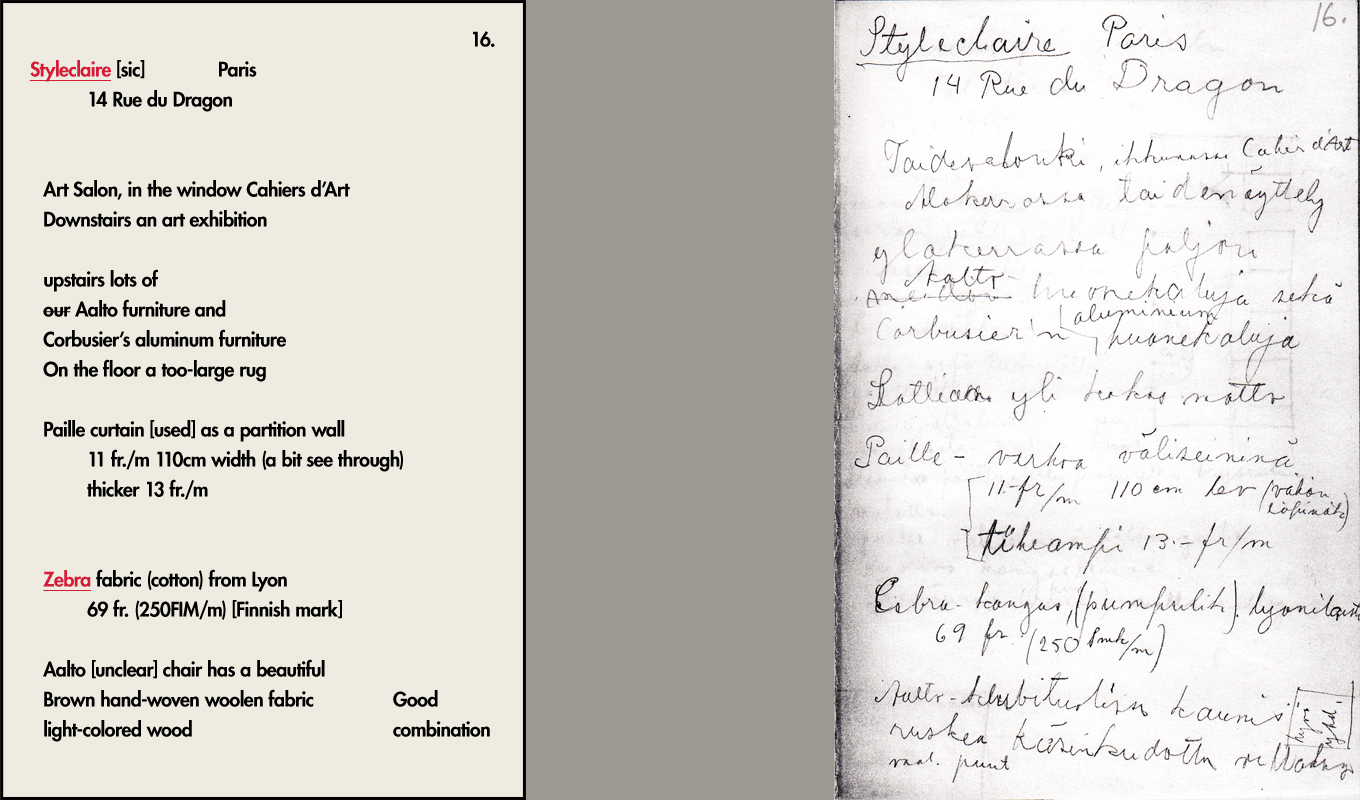 16.
Styleclaire [sic] Paris
14 Rue du Dragon
Art Salon, in the window Cahiers d’Art
Downstairs an art exhibition
upstairs lots of
our Aalto furniture and
Corbusier’s aluminum furniture
On the floor a too-large rug
Paille curtain [used] as a partition wall
11 fr./m 110cm width (a bit see through)
thicker 13 fr./m
Zebra fabric (cotton) from Lyon
69 fr. (250FIM/m) [Finnish mark]
Aalto [unclear] chair has a beautiful
Brown hand-woven woolen fabric Good
light-colored wood combination
16.
Styleclaire Paris
14 Rue du Dragon
Taidesalonki, ikkunassa Cahier d'Art
Alakerrassa taidenäyttely
yläkerrassa paljon
Aalto
meidän huonekaluja sekä
aluminium
Corbusier'n huonekaluja
Lattian yli matto
Paille - verhoa väliseininä
11.-fr/m 110 cm lev (vähän
läpinäk)
tiheämpi 13.- fr/m
kangas, (pumpulik)
69 fr. (250 Smk/m)
Aalto- kaunis
ruskea käsinkudottu
vaal. puut
hyvä
yhd.